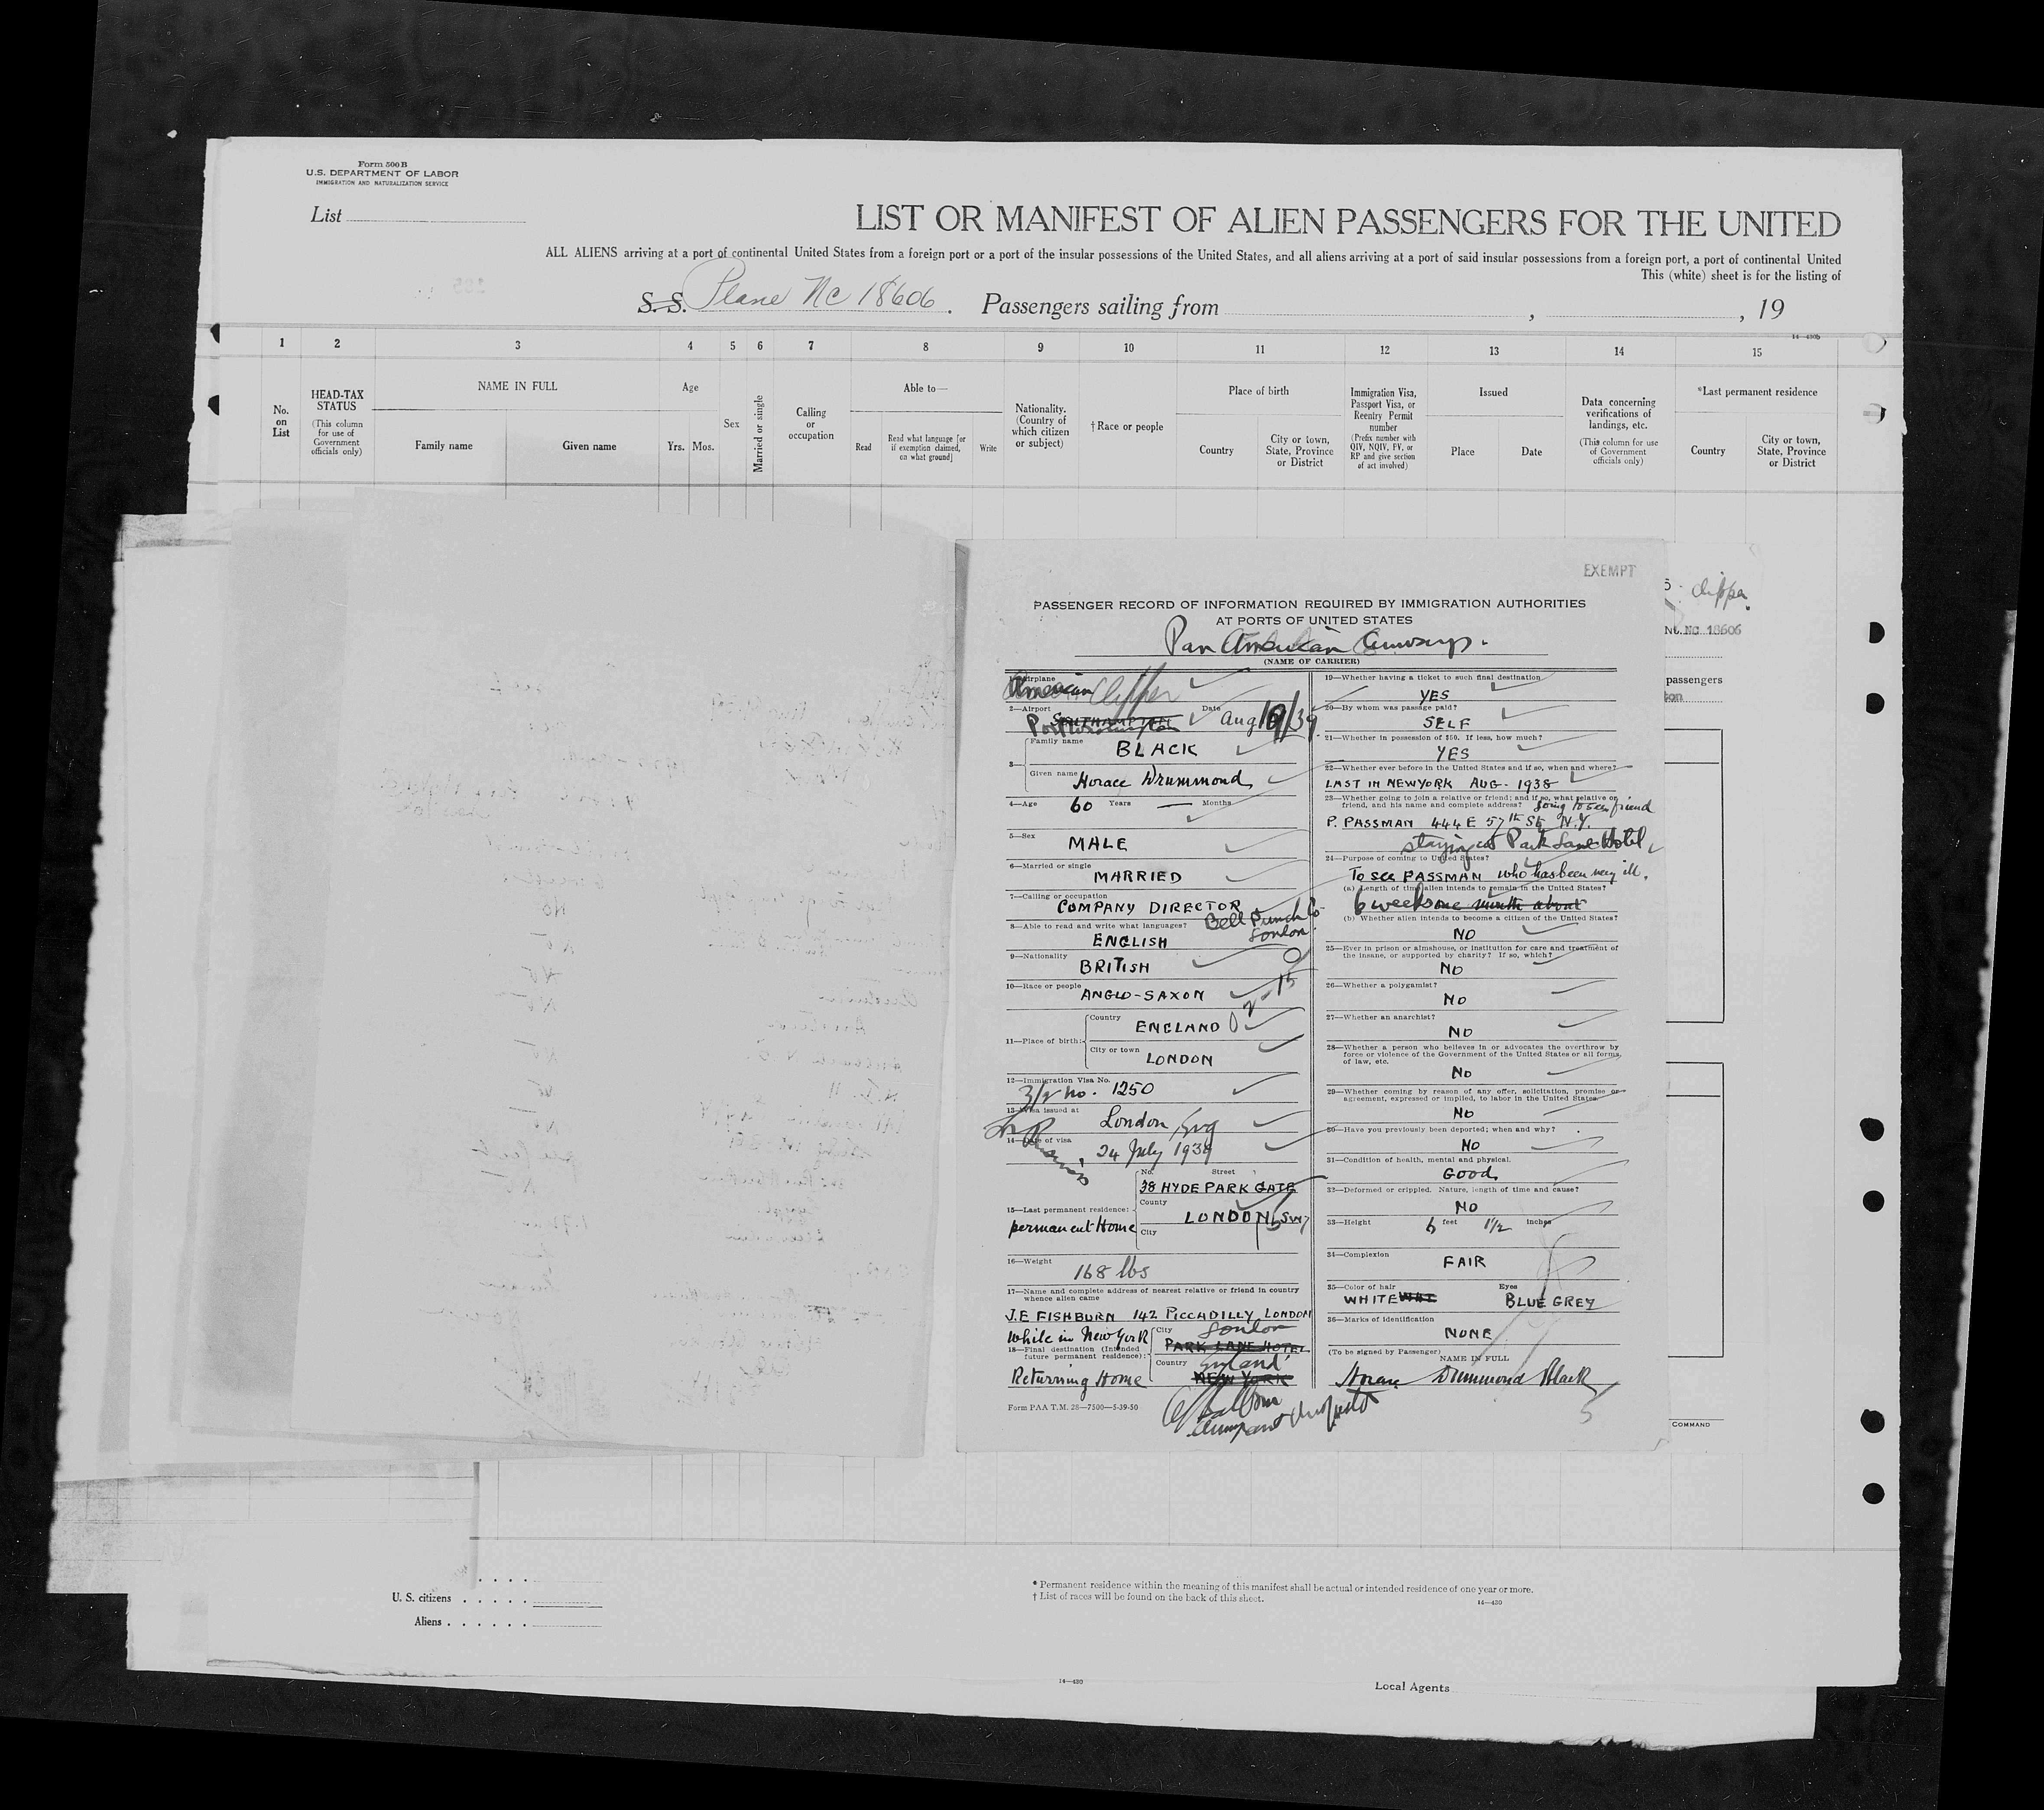 Form 500 B
U.S. DEPARTMENT OF LABOR
IMMIGRATION AND NATURALIZATION SERVICE
List
LIST OR MANIFEST OF ALIEN PASSENGERS FOR THE UNITED
ALL ALIENS arriving at a port of continental United States from a foreign port or a port of the insular possessions of the United States, and all aliens arriving at a port of said insular possessions from a foreign port, a port of continental United
This (white) sheet is for the listing of
S. S. Plane NC 18606. Passengers sailing from , , 19
1 2 3 4 5 6 7 8 9 10 11 12 13 14 15
14—430b
No. on List
HEAD-TAX STATUS (This column for use of Government officials only)
NAME IN FULL
Family name
Given name
Age
Yrs. Mos.
Sex
Married or single
Calling or occupation
Able to—
Read
Read what language [or if exemption claimed, on what ground]
Write
Nationality. (Country of which citizen or subject)
†Race or people
Place of birth
Country
City or town, State, Province or District
Immigration Visa, Passport Visa, or Reentry Permit number (Prefix number with QIV, NQIV, PV, or RP and give section of act involved)
Issued
Place
Date
Data concerning verifications of landings, etc. (This column for use of Government officials only)
*Last permanent residence
Country
City or town, State, Province or District
EXEMPT
Clipper
NC 18606
passengers
PASSENGER RECORD OF INFORMATION REQUIRED BY IMMIGRATION AUTHORITIES
AT PORTS OF UNITED STATES
Pan American Airways.
(NAME OF CARRIER)
1—Airplane
American Clipper
2—Airport Date
SOUTHAMPTON
Port Washington Aug /39
3— Family name
BLACK
Given name
Horace Drummond
4—Age 60 Years — Months
5—Sex
MALE
6—Married or single
MARRIED
7—Calling or occupation
COMPANY DIRECTOR
Bell Punch Co
London
8—Able to read and write what languages?
ENGLISH
9—Nationality
BRITISH
10—Race or people
ANGLO-SAXON
11—Place of birth:
Country
ENGLAND
City or town
LONDON
12—Immigration Visa No.
3/2 No. 1250
13—Visa issued at
London, Eng
14—Date of visa
24 July 1939
15—Last permanent residence:
permanent Home
No. Street
38 HYDE PARK GATE
County
LONDON SW7
City
16—Weight
168 lbs
17—Name and complete address of nearest relative or friend in country
whence alien came
J.E FISHBURN 142 PICCADILLY LONDON
while in New York
18—Final destination (Intended
future permanent residence):
Returning Home
City London
PARK LANE HOTEL
Country England
NEW YORK
Form PAA T.M. 28—7500—5-39-50
19—Whether having a ticket to such final destination
YES
20—By whom was passage paid?
SELF
21—Whether in possession of $50. If less, how much?
YES
22—Whether ever before in the United States and if so, when and where?
LAST IN NEWYORK AUG- 1938
23—Whether going to join a relative or friend; and if so, what relative or
friend, and his name and complete address? Going to see friend
P. PASSMAN 444 E 57th St. N.Y.
staying at Park Lane Hotel
24—Purpose of coming to United States?
To see PASSMAN who has been very ill.
(a) Length of time alien intends to remain in the United States?
6 weeks one month about
(b) Whether alien intends to become a citizen of the United States?
NO
25—Ever in prison or almshouse, or institution for care and treatment of
the insane, or supported by charity? If so, which?
NO
26—Whether a polygamist?
NO
27—Whether an anarchist?
NO
28—Whether a person who believes in or advocates the overthrow by
force or violence of the Government of the United States or all forms
of law, etc.
NO
29—Whether coming by reason of any offer, solicitation, promise or
agreement, expressed or implied, to labor in the United States.
NO
30—Have you previously been deported; when and why?
NO
31—Condition of health, mental and physical.
GOOD
32—Deformed or crippled. Nature, length of time and cause?
NO
33—Height 6 feet 1½ inches
34—Complexion
FAIR
35—Color of hair Eyes
WHITE BLUE GREY
36—Marks of identification
NONE
(To be signed by Passenger)
NAME IN FULL
Horace Drummond Black
COMMAND
U. S. citizens
Aliens
* Permanent residence within the meaning of this manifest shall be actual or intended residence of one year or more.
† List of races will be found on the back of this sheet.
14—430
14—430
Local Agents